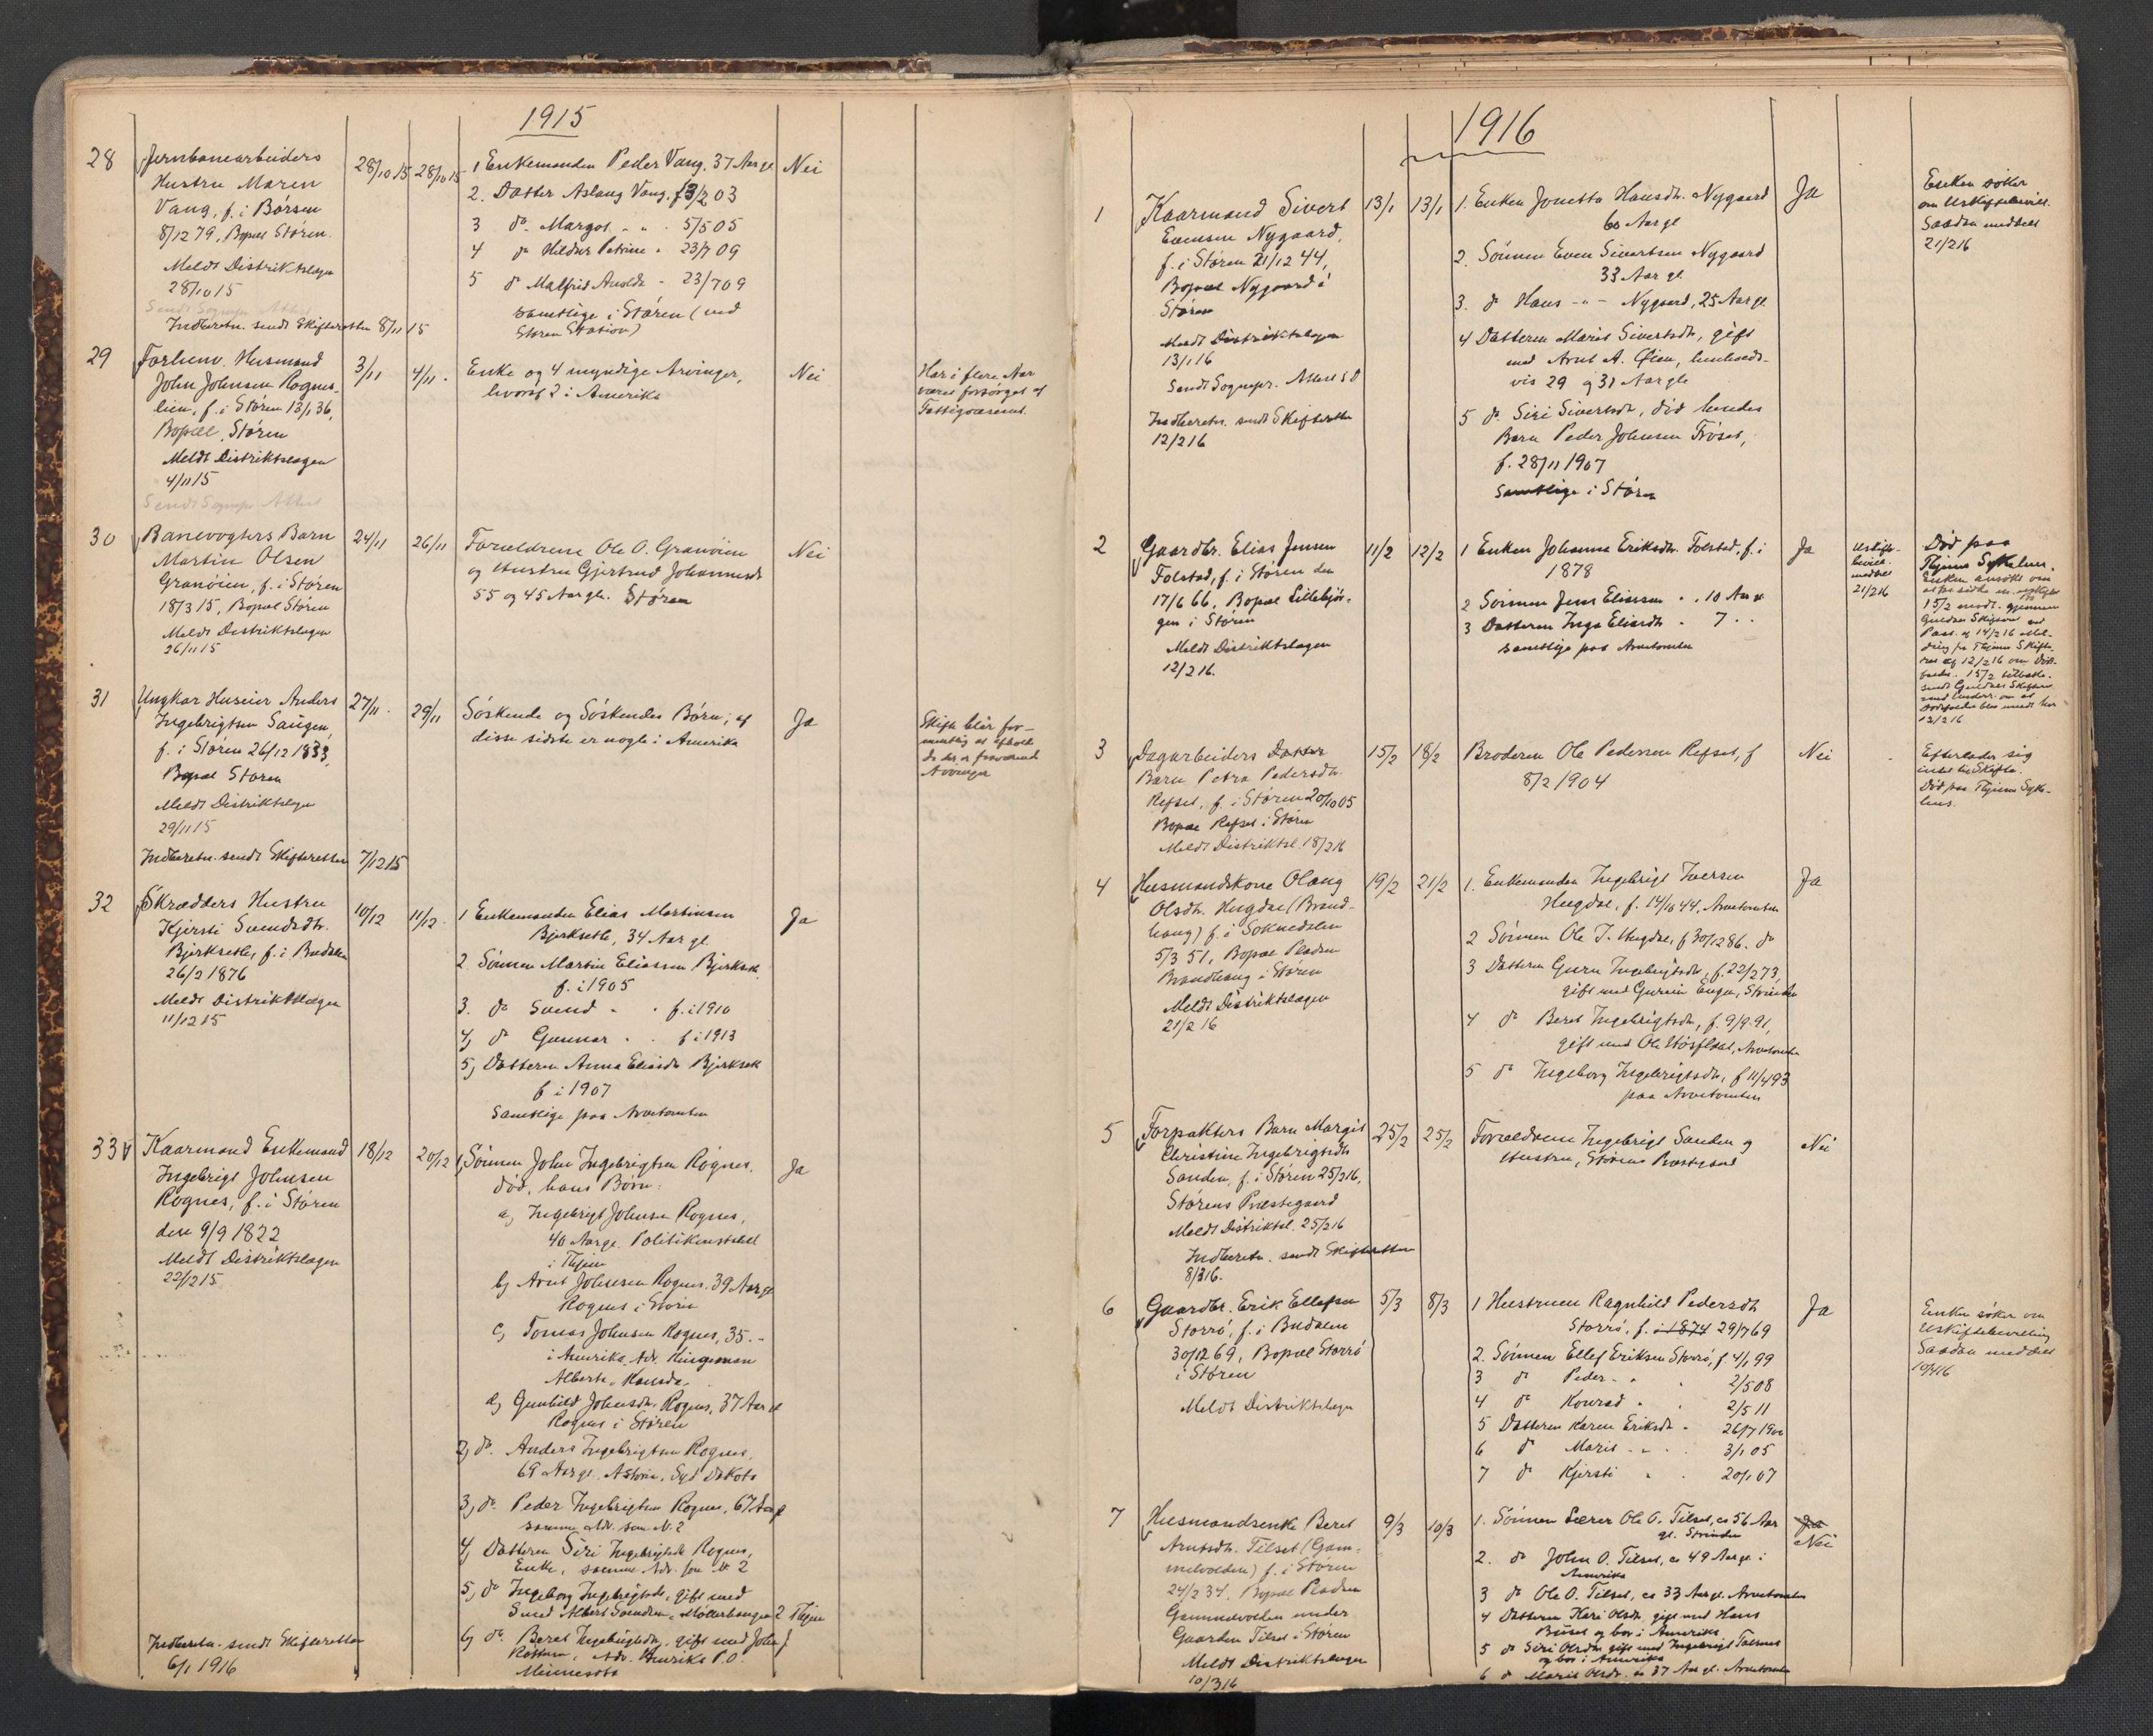 1915
28 Jernbanearbeiders 28/10 15 28/10 15 1 Enkemanden Peder Vang. 37 Aar gl. Nei
Hustru Maren 2. Datter Aslaug Vang. f 3/2 03
Vang, f. i Børsen 3 do Margot " " 5/5 05
8/12 79, Bopæl Støren. 4 do Hildur Petrine " 23/7 09
Meldt Distriktslægen 5 do Malfrid - 23/7 09
28/10 15 samtlige i Støren (ved
Indberetn. sendt Skifteretten 8/11 15 Støren Station)
29 Forhenv. Husmand 3/11 4/11. Enke og 4 myndige Arvinger, Nei Har i flere Aar
John Johnsen Rognes- hvoraf 2 i Amerika været forsørget af
lien, f. i Støren 13/1 36, Fattigvæsenet.
Bopæl Støren
Meldt Distriktslægen
4/11 15
Sendt Sognepr. Attest
30 Banevogters Barn 24/11 26/11 Forældrene Ole O. Granøien Nei
Martin Olsen og Hustru Gjertrud Johannesdt
Granøien, f. i Støren 55 og 45 Aar gl. Støren
18/3 15, Bopæl Støren
Meldt Distriktslægen
26/11 15
31 Ungkar Huseier Anders 27/11. 29/11 Søskende og Søskendes Børn; af Ja Skifte blir for-
Ingebrigtsen Saugen, disse sidste er nogle i Amerika mentlig at afholde
f. i Støren 26/12 1833, da der er fraværende
Bopæl Støren Arvinger
Meldt Distriktslægen
29/11 15
Indberetn. sendt Skifteretten 7/12 15
32 Skrædders Hustru 10/12 11/12. 1 Enkemanden Elias Martinsen Ja
Kjersti Svendsdt. Bjerksetle, 34 Aar gl.
Bjerksetle, f. i Budalen 2 Sønnen Martin Eliassen Bjerkset.
26/2 1876 f. i 1905
Meldt Distriktslægen 3. do Svend " " f. i 1910
11/12 15 4, do Gunnar " " f i 1913
5, Datteren Anna Eliasdt Bjerkset
f i 1907
Samtlige paa Arvetomten
33 Kaarmand Enkemand 18/12 20/12 1, Sønnen John Ingebrigtsen Rognes. Ja
Ingebrigt Johnsen død, hans Børn:
Rognes, f. i Støren a, Ingebrigt Johnsen Rognes,
den 9/9 1822 40 Aar gl. Politikonstabel
Meldt Distriktslægen i Thjem
22/12 15. b, Arnt Johnsen Rognes. 39 Aar gl
Rognes i Støren
c, Tomas Johnsen Rognes, 35. "
i Amerika. Adr. Kingman
Alberta, Kanada.
d, Gunhild Johnsdt. Rognes, 37 Aar gl
Rognes i Støren
2, do. Anders Ingebrigtsen Rognes,
69 Aar gl. Astoria, Syd Dakota
3, do. Peder Ingebrigtsen Rognes, 67 Aar gl
samme Adr. som N. 2
4, Datteren Siri Ingebrigtsdt Rognes,
Enke, samme Adr. som N. 2
5, do Ingeborg Ingebrigtsdt, gift med
Smed Albert Svendsen, Møllerbangen 2 Thjem
Indberetn. sendt Skifteretten 6, do. Beret Ingebrigtsdt, gift med John J
6/1 1916 Adr. Amerika P.O.
Minnesota
1916
1 Kaarmand Sivert 13/1 13/1 1. Enken Jonetta Hansdt. Nygaard Ja Enken søker
Evensen Nygaard, 60 Aar gl om Uskiftebevill.
f. i Støren 21/12 44, 2. Sønnen Even Sivertsen Nygaard Saadan meddelt
Bopæl Nygaard i 33 Aar gl 21/2 16
Støren 3. do Hans - " - Nygaard, 25 Aar gl
Meldt Distriktslægen 4 Datteren Marit Sivertsdt, gift
13/1 16 med Arnt A. Øien, henholds-
Sendt Sognepr. Attest S D vis 29 og 31 Aar gl
Indberetn. sendt Skifteretten 5 do Siri Sivertsdt, død hendes
12/2 16 Barn Peder Johnsen Frøset,
f. 28/11 1907
Samtlige i Støren
2 Gaardbr. Elias Jensen 11/2 12/2 1 Enken Johanna Eriksdt. Folstad, f. i Ja Uskifte- Død paa
Folstad, f. i Støren den 1878 bevill. Thjems Sykehus.
17/6 66, Bopæl Lillebjør- 2 Sønnen Jens Eliassen " . 10 Aar gl meddelt Enken ansøkt om
gen i Støren 3 Datteren Inga Eliasdt " 7 " " 21/2 16
Meldt Distriktslægen samtlige paa Arvetomten 15/2 modt. gjennem
12/2 16. Guldal Skifteret
3 Dagarbeiders Datter 15/2 18/2 Broderen Ole Pedersen Refset, f Nei Efterlader sig
Barn Petra Pedersdt. 8/2 1904 intet til Skifte.
Refset, f. i Støren 20/10 05 Død paa Thjems Syke-
Bopæl Refset i Støren hus.
Meldt Distriktsl. 18/2 16
4 Husmandskone Olaug 19/2 21/2 1. Enkemanden Ingebrigt Iversen Ja
Olsdt. Hugdal (Brand- Hugdal, f. 14/10 44, Arvetomten
haug) f. i Soknedalen 2 Sønnen Ole I. Hugdal, f 30/12 86. do
5/3 51, Bopæl Pladsen 3 Datteren Guru Ingebrigtsdt, f. 22/2 73,
Brandhaug i Støren gift med Engen, Strinden
Meldt Distriktslægen 4 do Beret Ingebrigtsdt, f. 9/9 91,
21/2 16 gift med Ole Arvetomten
5 do Ingeborg Ingebrigtsdt, f 11/4 93
paa Arvetomten
5 Forpakters Barn Margit 25/2 25/2 Forældrene Ingebrigt Sanden og Nei
Christine Ingebrigtsdt Hustru, Støren Præstegaard
Sanden, f. i Støren 25/2 16,
Størens Præstegaard
Meldt Distriktsl. 25/2 16
Indberetn. sendt Skifteretten
8/3 16.
6 Gaardbr. Erik Ellefsen 5/3 8/3 1 Hustruen Ragnhild Pedersdt Ja Enken søker om
Storrø, f. i Budalen Storrø, f. i 1874 29/7 69 Uskiftebevilling
30/12 69, Bopæl Storrø 2. Sønnen Ellef Eriksen Storrø, f. 4/1 99 Saadan meddelt
i Støren 3 do Peder - " " 2/5 08 10/4 16
Meldt Distriktslægen 4 do Konrad " " 2/5 11
5 Datteren Karen Eriksdt " 26/7 1900
6 do Marit - " " 3/1 05
7 do Kjersti " " 20/1 07
7 Husmandsenke Beret 9/3 10/3 1. Sønnen Lærer Ole O. Tilset, ca 56 Aar Ja
Arntsdt. Tilset (Gam- gl. Strinden Nei
melvolden) f. i Støren 2. do John O. Tilset, ca 49 Aar gl i
24/2 34, Bopæl Pladsen Amerika
Gammelvolden under 3 do Ole O. Tilset, ca 33 Aar gl. Arvetomten
Gaarden Tilset i Støren 4 Datteren Kari Olsdt, gift med Hans
Meldt Distriktslægen og bor i Amerika
10/3 16 5 do Siri Olsdt gift med Ingebrigt
og bor i Amerika
6 do Marit Olsdt. ca 37 Aar gl. Arvetomten